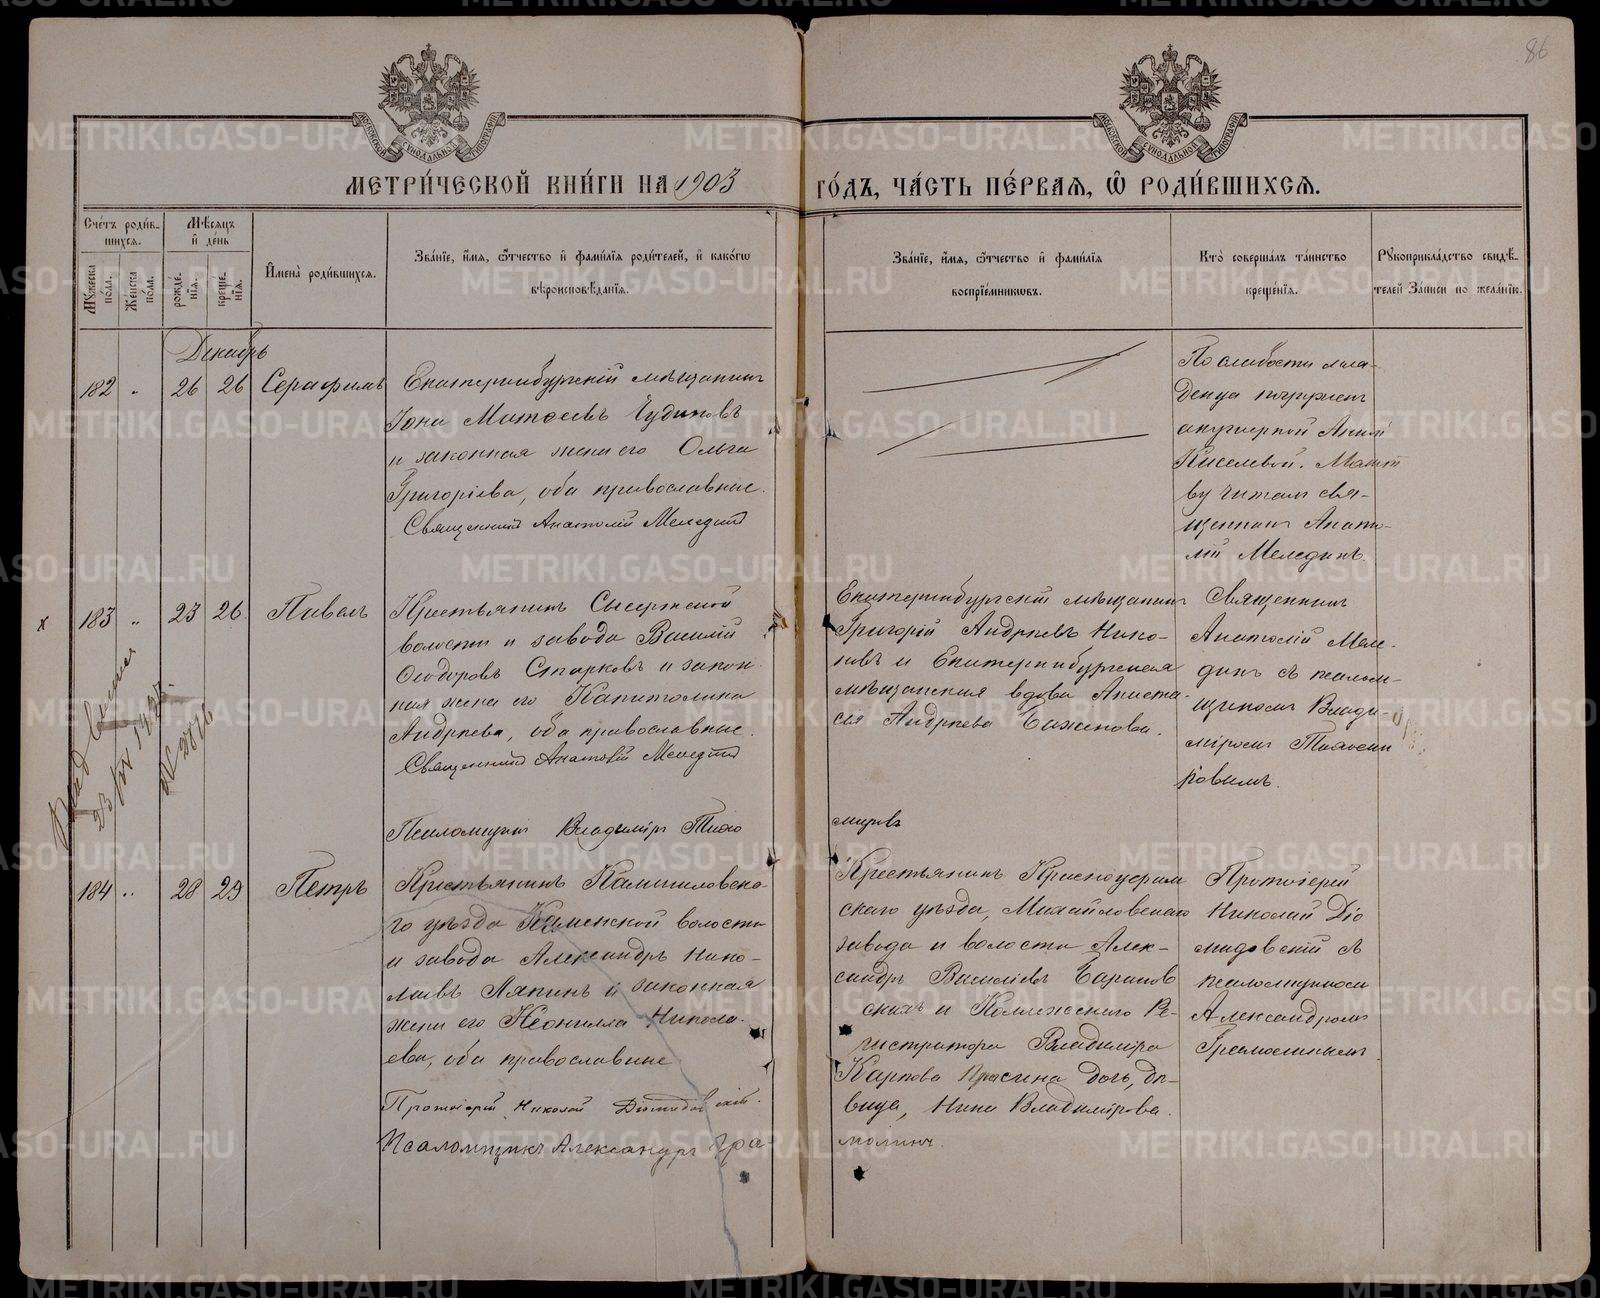 86
МЕТРИ́ЧЕСКОЙ КНИ́ГИ НА 1903
ГО́ДЪ, ЧА́СТЬ ПЕ́РВАЯ, Ѡ РОДИ́ВШИХСЯ.
Сче́тъ роди́вшихся.
Мѣ́сяцъ и день
Му́жеска по́ла.
Же́нска по́ла.
рожде́нія.
креще́нія.
И́мена роди́вшихся.
Зва́ніе, и́мя, ѻ́тчество и фами́лія роди́телей, и како́гѡ
вѣроисповѣ́данія.
Зва́ніе, и́мя, ѻ́тчество и фами́лія
воспріе́мникѡвъ.
Кто̀ соверша́лъ та́инство
креще́нія.
Рукоприкла́дство свидѣ́-
телей за́писи по жела́нію.
Декабрь
182 " 26 26 Серафимъ
Екатеринбургскій мѣщанинъ
Іона Матѳеевъ Чудиновъ
и законная жена его Ольга
Григоріева, оба православные.
Священникъ Анатолій Мелединъ
По слабости мла-
денца погруженъ
акушеркой Анной
Киселевой. Молит
ву читалъ свя-
щенникъ Анато-
лій Мелединъ.
х 183 " 23 26 Павелъ
Крестьянинъ Сысертской
волости и завода Василій
Ѳеодоровъ Старковъ и закон-
ная жена его Капитолина
Андреева, оба православные.
Священникъ Анатолій Мелединъ
Псаломщикъ Владиміръ Тихо
мировъ
Екатеринбургскій мѣщанинъ
Григорій Андреевъ Нико-
новъ и Екатеринбургская
мѣщанская вдова Анаста-
сія Андреева Баженова.
Священникъ
Анатолій Меле-
динъ съ псалом-
щикомъ Влади-
міромъ Тихоми
ровымъ.
184 " 28 29 Петръ
Крестьянинъ Камышловска-
го уѣзда Каменской волости
и завода Александръ Нико-
лаевъ Ляпинъ и законная
жена его Неонилла Никола-
ева, оба православные
Протоіерей Николай Діомидовскій.
Псаломщикъ Александръ Гра-
молинъ.
Крестьянинъ Красноуфим
скаго уѣзда, Михайловскаго
завода и волости Алек-
сандръ Василіевъ Баранов
скихъ и Коллежскаго Ре-
гистратора Владиміра
Карпова дочь, дѣ-
вица, Нина Владимірова.
Протоіерей
Николай Діо
мидовскій съ
псаломщикомъ
Александромъ